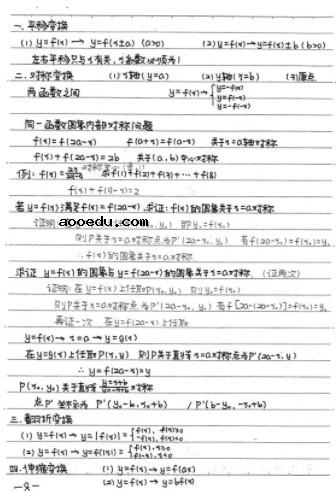 一、平移变换
(1) y=f(x) → y=f(x±a) (a>0) (2) y=f(x)→y=f(x)±b (b>0)
左右平移只与x有关，x系数必须为1
二、对称变换 (1) x轴 (y=a) (2) y轴 (x=b) (3)原点
两函数之间 y=f(x)→ { y=-f(x) y=f(-x) y=-f(-x)
同一函数图象内部对称问题
f(x)=f(2a-x) f(a+x)=f(a-x) 关于x=a轴对称
f(x)+f(2a-x)=2b 关于(a,b)中心对称
求f(1)+f(2)+f(3)+…+f(8)
f(x)+f(4-x)=2
若y=f(x)满足f(x)=f(2a-x)，求证：f(x)的图象关于x=a对称
aooedu.com
则P关于x=a对称点为P'(2a-x₀, y₀) 有f(2a-x₀)=f(x₀)=y₀
∴f(x)的图象关于x=a对称
求证 y=f(x)的图象与y=f(2a-x)的图象关于x=a对称 (证两次)
证明：在y=f(x)上任取P(x₀, y₀) 则y₀=f(x₀)
则P关于x=a对称点为P'(2a-x₀, y₀) 有f[2a-(2a-x₀)]=f(x₀)=y₀
再证一次 在y=f(2a-x)上任取
y=f(x) → x=a → y=g(x)
在y=g(x)上任取P(x, y) 则P关于直线x=a对称点为P'(2a-x, y)
∴ y=f(2a-x)=y
P(x₀, y₀)关于直线 y=x+b y=-x+b 对称
点P'坐标为 P'(y₀-b, x₀+b) / P'(b-y₀, -x₀+b)
三、翻折变换
(1) y=f(x)→y=|f(x)|= { f(x), f(x)≥0 -f(x), f(x)<0
(2) y=f(x)→y=f(|x|)= { f(x), x≥0 f(-x), x<0
四、伸缩变换 (1) y=f(x)→y=f(ax)
(2) y=f(x)→y=bf(x)
-8-